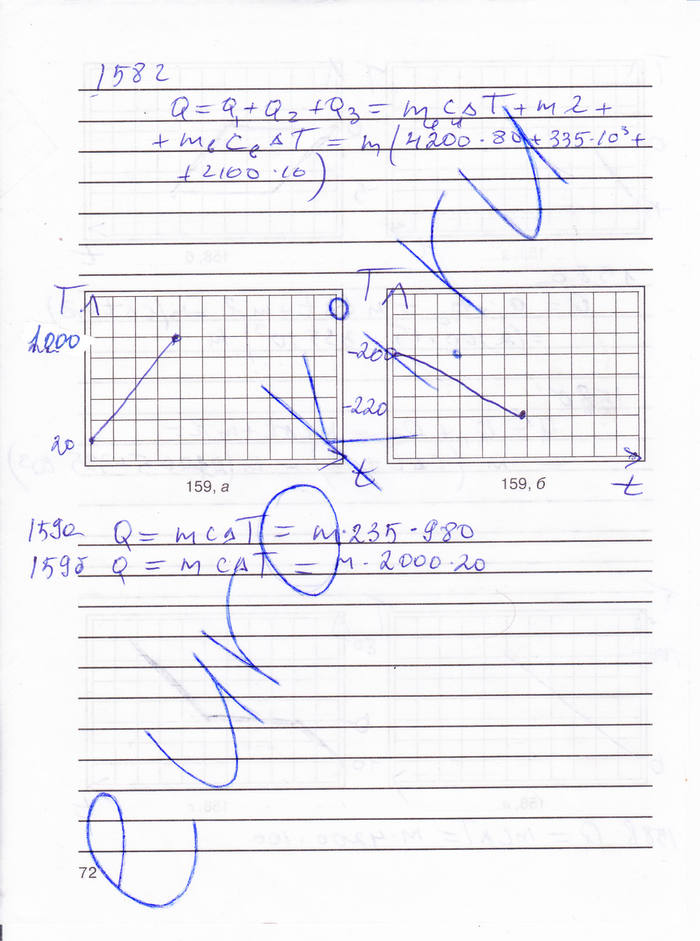 158г
Q = Q₁ + Q₂ + Q₃ = mвcвΔT + mλ +
+ mвcвΔT = m(4200·80 + 335·10³ +
+ 2100·10)
T
1000
20
t
159, а
T
-200
-220
t
159, б
159а Q = mcΔT = m·235·980
159б Q = mcΔT = m·2000·20
72